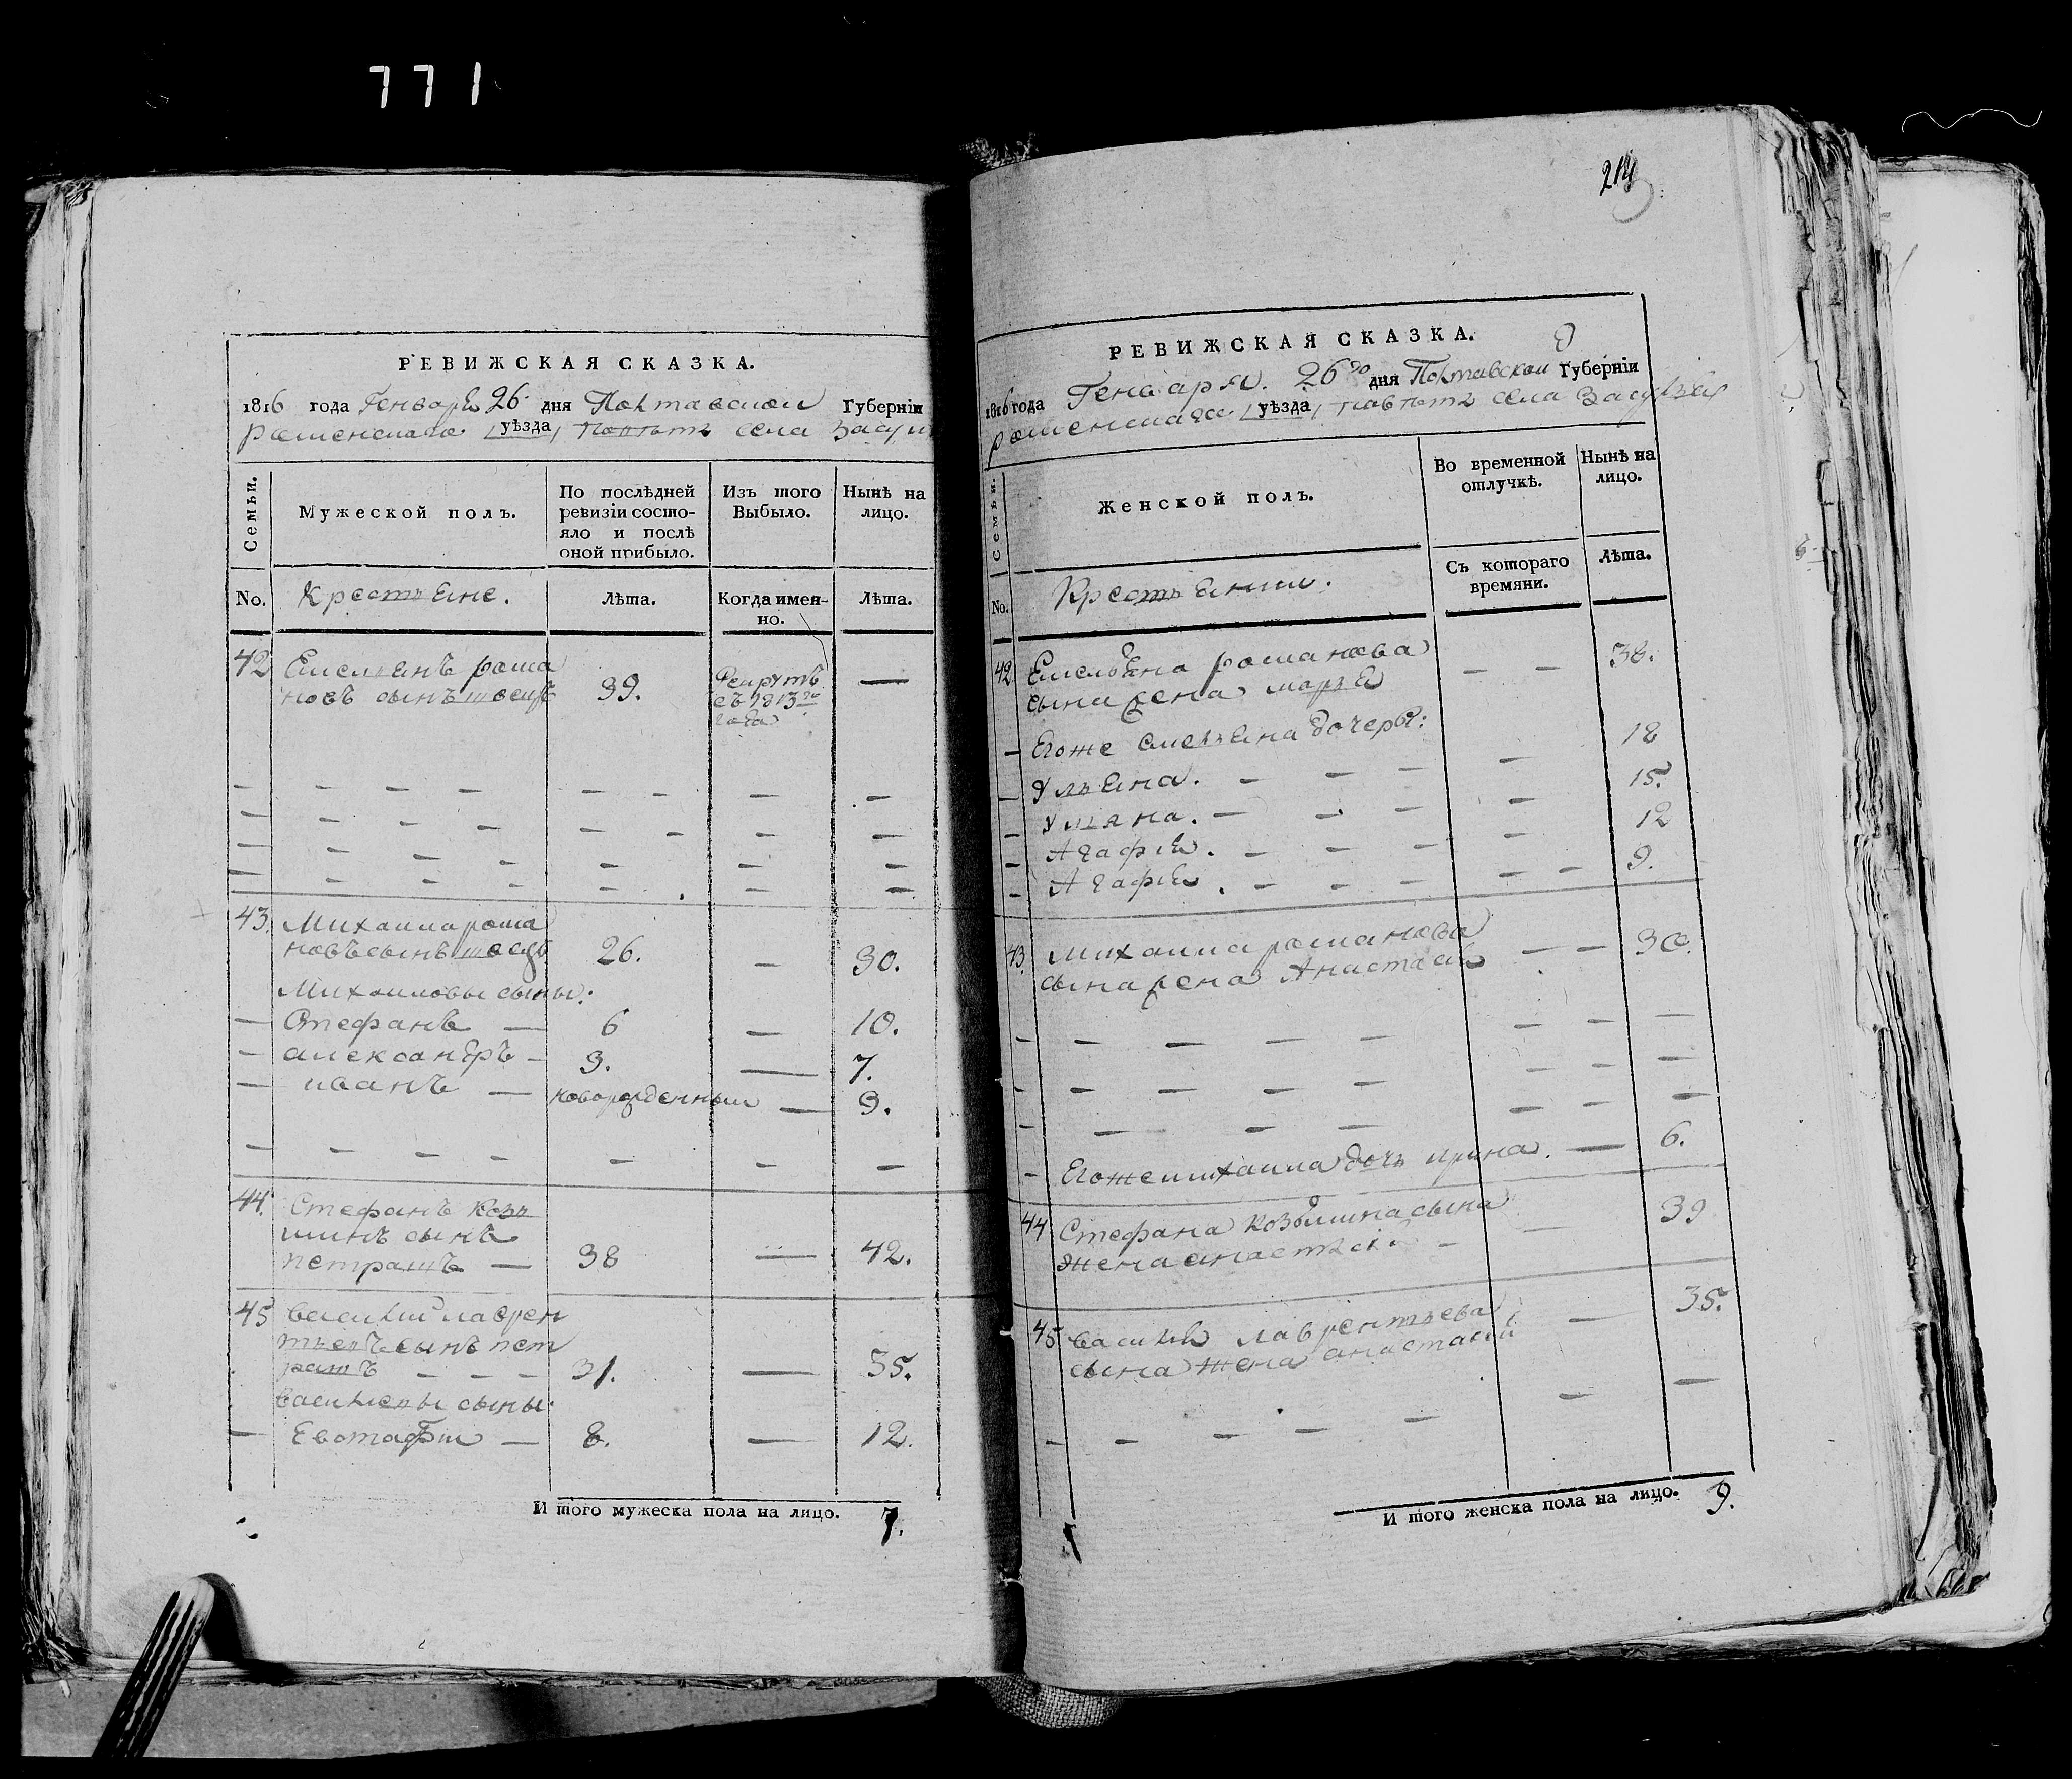 771
РЕВИЖСКАЯ СКАЗКА.
1816 года Генваря 26 дня Полтавской Губерніи
Роменскаго уѣзда, Повѣтъ села Засул
Семьи.
Мужеской полъ.
По послѣдней ревизіи состо-
яло и послѣ оной прибыло.
Изъ того Выбыло.
Нынѣ на лицо.
No.
Крестьяне.
Лѣта.
Когда имен-
но.
Лѣта.
42 Емельянъ рома
новъ сынъ швецъ 39. —
Рекрутъ
съ 1813го
года
43. Михаила рома
новъ сынъ швецъ 26. — 30.
Михаиловы сыны:
— Стефанъ — 6 — 10.
— александръ — 3. — 7.
— иванъ — новорожденный — 3.
44. Стефанъ козь
минъ сынъ
петрашъ — 38 — 42.
45 василий лаврен
тьевъ сынъ пет
рашъ — — — 31. — 35.
васильевы сыны
— Евстафий — 8. — 12.
И того мужеска пола на лицо. 7.
РЕВИЖСКАЯ СКАЗКА.
1816 года Генваря. 26го дня Полтавской Губерніи
роменскаго уѣзда, повѣтъ села Засулья
Семьи.
Женской полъ.
Во временной отлучкѣ.
Нынѣ на лицо.
No.
Крестьянки.
Съ котораго времяни.
Лѣта.
42 Емельяна романова
сына жена марья — — 38.
— Егоже емельяна дочеры: 18
— Ульяна. — — — — 15.
— Ульяна. — — — — 12
— Агафия. — — — — 9.
— Агафия. — — — — —
43. Михаила романова
сына жена Анастасия — — 30.
— Егоже михаила дочь ирина. — 6.
44 Стефана козьмина сына 39
жена анастасия — —
45 василия лаврентьева — 35.
сына жена анастасия
И того женска пола на лицо. 9.